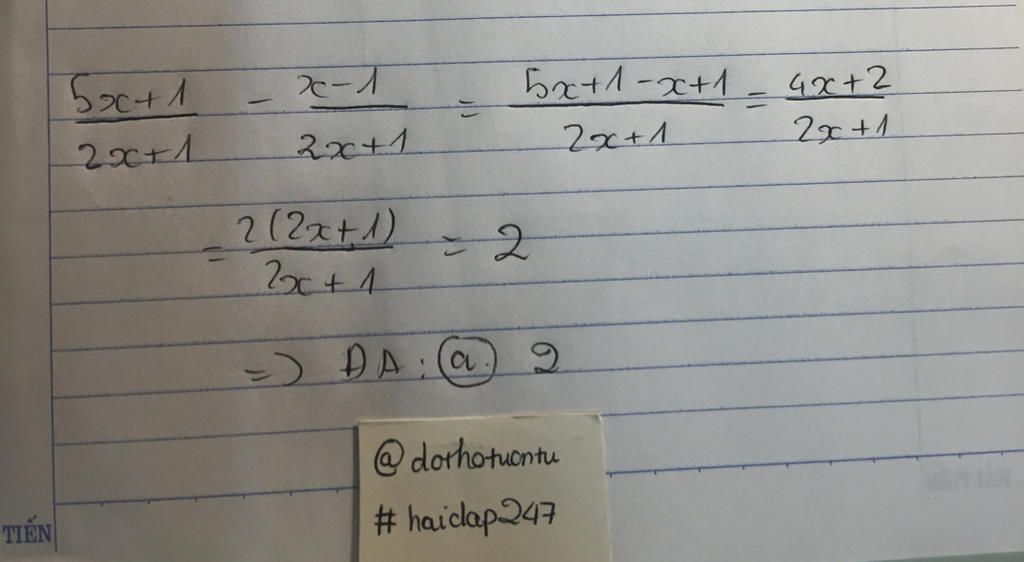 (5x+1)/(2x+1) - (x-1)/(2x+1) = (5x+1-x+1)/(2x+1) = (4x+2)/(2x+1)
= 2(2x+1)/(2x+1) = 2
=> ĐA: a. 2
@dorhotuontu
#haidap247
TIẾN